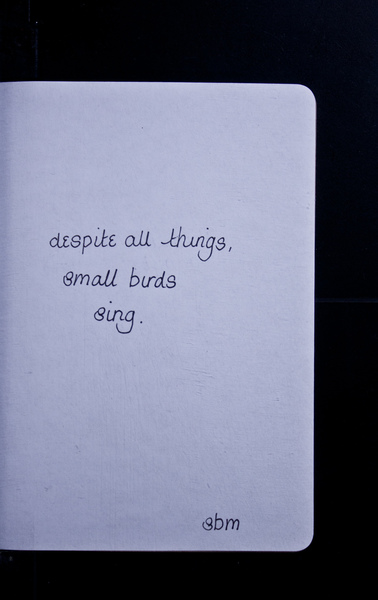 despite all things,
small birds
sing.
sbm